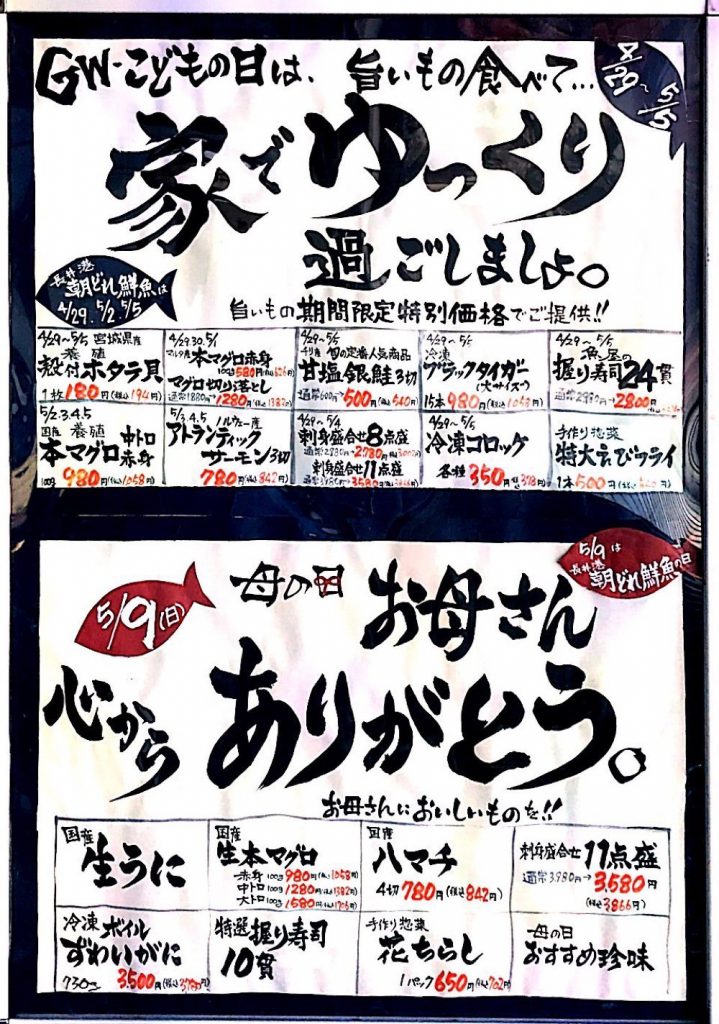 GW・こどもの日は、旨いもの食べて…
4/29〜5/5
家でゆっくり
過ごしましょ。
長井港
朝どれ鮮魚は
4/29.5/2.5/5
旨いもの期間限定特別価格でご提供!!
4/29〜5/5 宮城県産
養殖
殻付ホタテ貝
1枚180円(税込194円)
4/29.30.5/1
マルタ産本マグロ赤身
100g580円(税込626円)
マグロ切り落とし
通常1880→1280円(税込1382円)
4/29〜5/5
チリ産 旬の定番人気商品
甘塩銀鮭3切
通常600円→500円(税込540円)
4/29〜5/5
冷凍
ブラックタイガー
(大サイズ)
15本980円(税込1058円)
4/29〜5/5
漁屋の
握り寿司24貫
通常2980円→2800円
5/2.3.4.5
国産 養殖
本マグロ 中トロ
赤身
100g980円(税込1058円)
5/3.4.5 ノルウェー産
アトランティック
サーモン3切
780円(税込842円)
4/29〜5/4
刺身盛合せ8点盛
通常2980円→2780円(税込3002円)
刺身盛合せ11点盛
通常3980円→3580円(税込3866円)
4/29〜5/5
冷凍コロッケ
各種350円(税込378円)
手作り惣菜
特大えびフライ
1本500円(税込540円)
5/9(日)
母の日
お母さん
心から
ありがとう。
5/9は
長井港
朝どれ鮮魚の日
お母さんにおいしいものを!!
国産
生うに
国産
生本マグロ
赤身100g980円(税込1058円)
中トロ100g1280円(税込1382円)
大トロ100g1580円(税込1706円)
国産
ハマチ
4切780円(税込842円)
刺身盛合せ11点盛
通常3980円→3,580円
(税込3,866円)
冷凍ボイル
ずわいがに
730g3,500円(税込3,780円)
特選握り寿司
10貫
手作り惣菜
花ちらし
1パック650円(税込702円)
母の日
おすすめ珍味